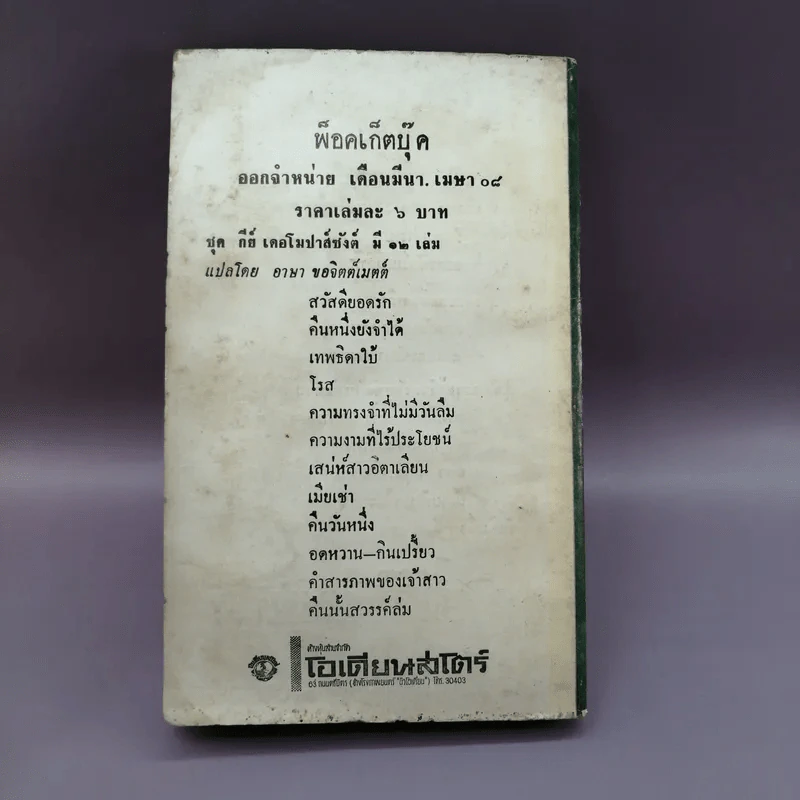 พ็อคเก็ตบุ๊ค
ออกจำหน่าย เดือนมีนา. เมษา ๐๘
ราคาเล่มละ ๖ บาท
ชุด กีย์ เดอโมปาส์ซังต์ มี ๑๒ เล่ม
แปลโดย อาษา ขอจิตต์เมตต์
สวัสดียอดรัก
คืนหนึ่งยังจำได้
เทพธิดาใบ้
โรส
ความทรงจำที่ไม่มีวันลืม
ความงามที่ไร้ประโยชน์
เสน่ห์สาวอิตาเลียน
เมียเช่า
คืนวันหนึ่ง
อดหวาน—กินเปรี้ยว
คำสารภาพของเจ้าสาว
คืนนั้นสวรรค์ล่ม
ห้างหุ้นส่วนจำกัด
โอเดียนสโตร์
โทร. 30403